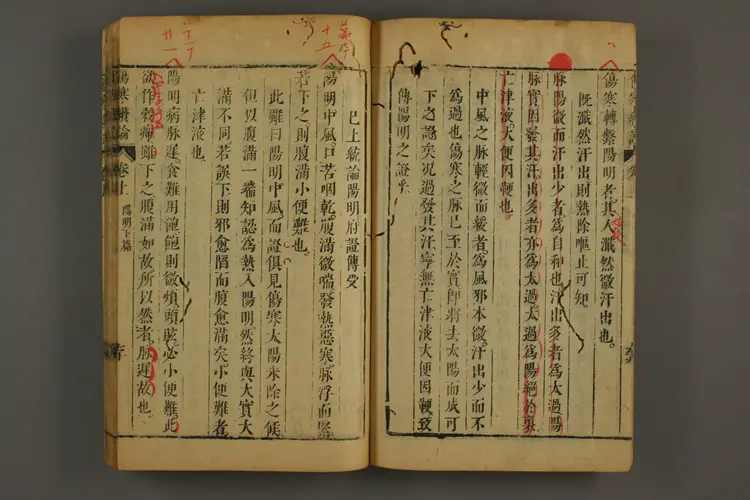 傷寒轉繫陽明者其人濈然微汗出也
既濈然汗出則熱除嘔止可知
脉陽微而汗出少者爲自和也汗出多者爲太過陽
脉實因發其汗出多者亦爲太過太過爲陽絕於裏
亡津液大便因鞕也
中風之脉輕微而緩者爲風邪本微汗出少而不
爲過也傷寒之脉已至於實即將去太陽而成可
下之證矣况過發其汗寧無亡津液大便因鞕致
傳陽明之證乎
已上統論陽明府證傳受
陽明中風口苦咽乾腹滿微喘發熱惡寒脉浮而緊
若下之則腹滿小便難也
此雖曰陽明中風而證俱見傷寒太陽未除之候
但以腹滿一端知認爲熱入陽明然終與大實大
滿不同若誤下則邪愈陷而腹愈滿矣小便難者
亡津液也
陽明病脉遲食難用飽飽則微煩頭眩必小便難此
欲作穀癉雖下之腹滿如故所以然者脉遲故也
傷寒纘論 卷上 陽明下篇